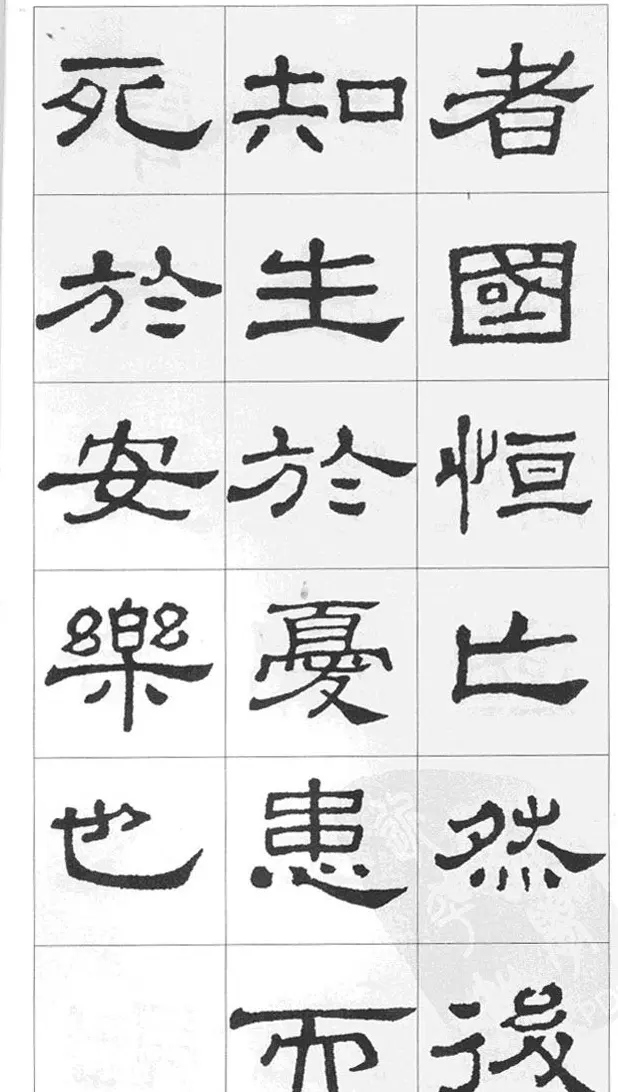 者國恒亡然後
知生於憂患而
死於安樂也